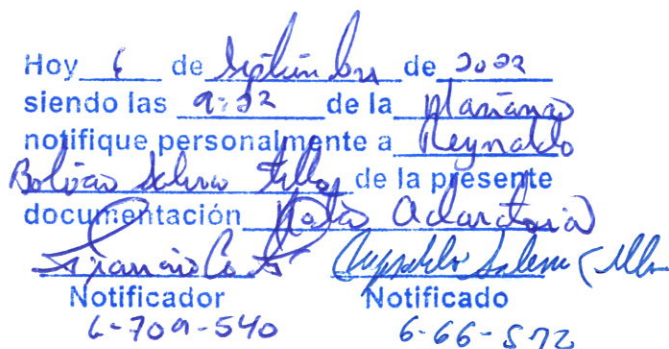 Hoy 6 de Septiembre de 2022
siendo las 9:22 de la Mañana
notifique personalmente a Reynaldo
Bolívar Salerno Tello de la presente
documentación Nota Aclaratoria
Notificador Notificado
6-709-540 6-66-572